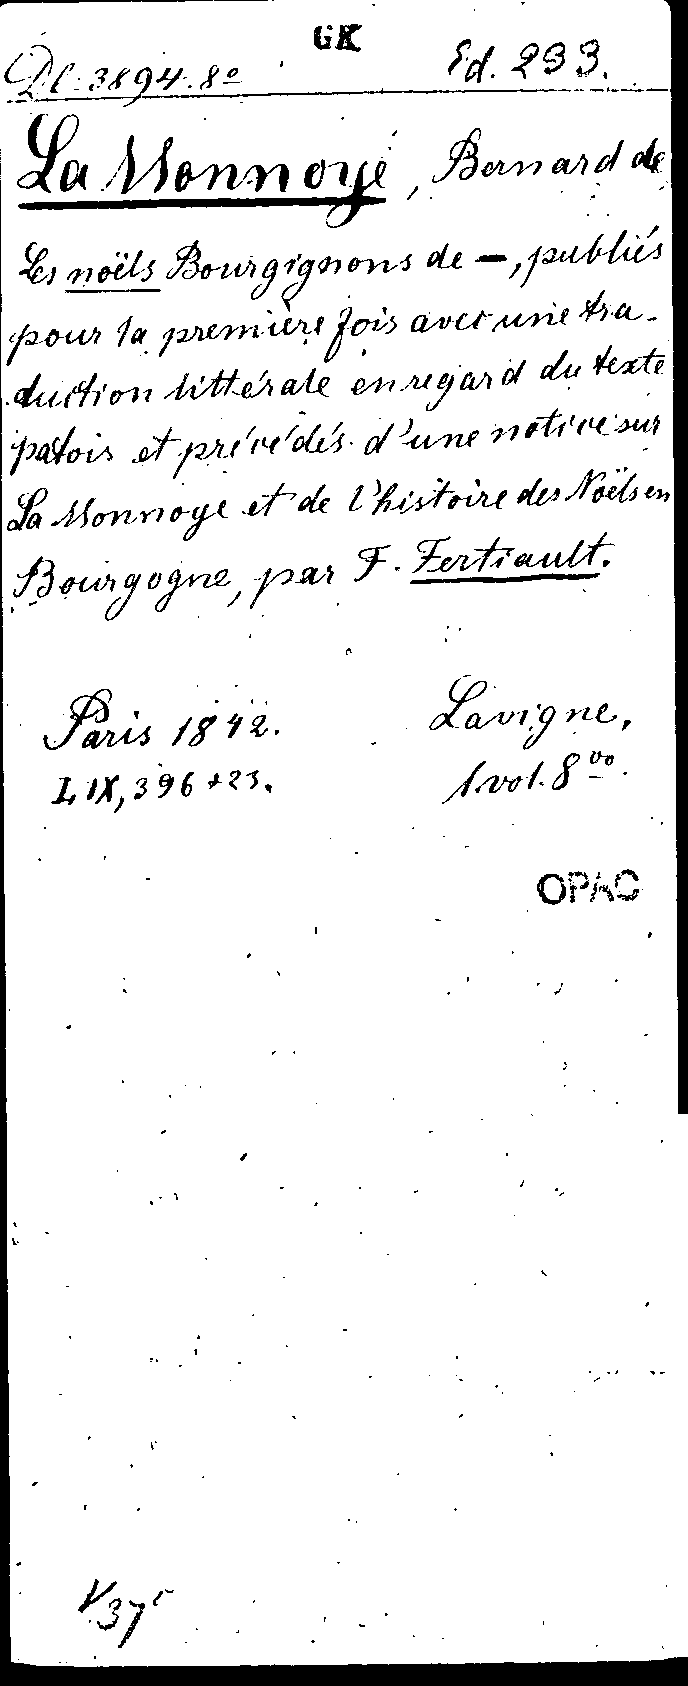 GK
Dl. 3894. 8º Ed. 233.
La Monnoye, Bernard de
Les noëls Bourgignons de —, publiés
pour la première fois avec une tra-
duction littérale en regard du texte
patois et précédés d'une notice sur
La Monnoye et de l'histoire des Noëls en
Bourgogne, par F. Fertiault.
Paris 1842. Lavigne,
LIX, 396 + 23. 1 vol. 8ºº.
OPAC